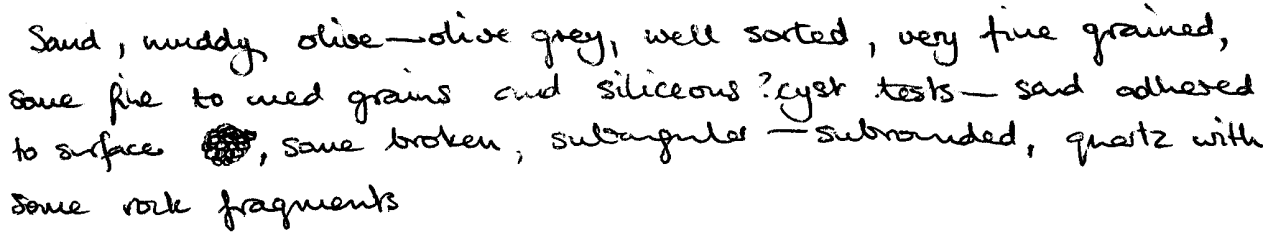 Sand, muddy, olive—olive grey, well sorted, very fine grained,
some fine to med grains and siliceous ?cyst tests — sand adhered
to surface, some broken, subangular — subrounded, quartz with
some rock fragments